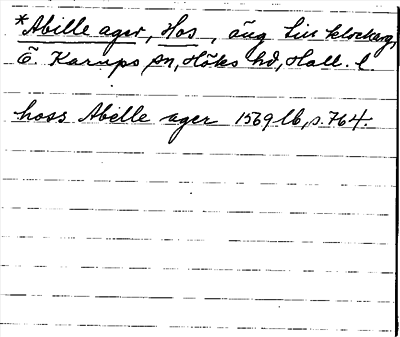 *Abille ager, Hos, äng till klockareg,
Ö. Karups sn, Höks hd, Hall. l.
hoss Abille ager 1569 lb, s. 764.